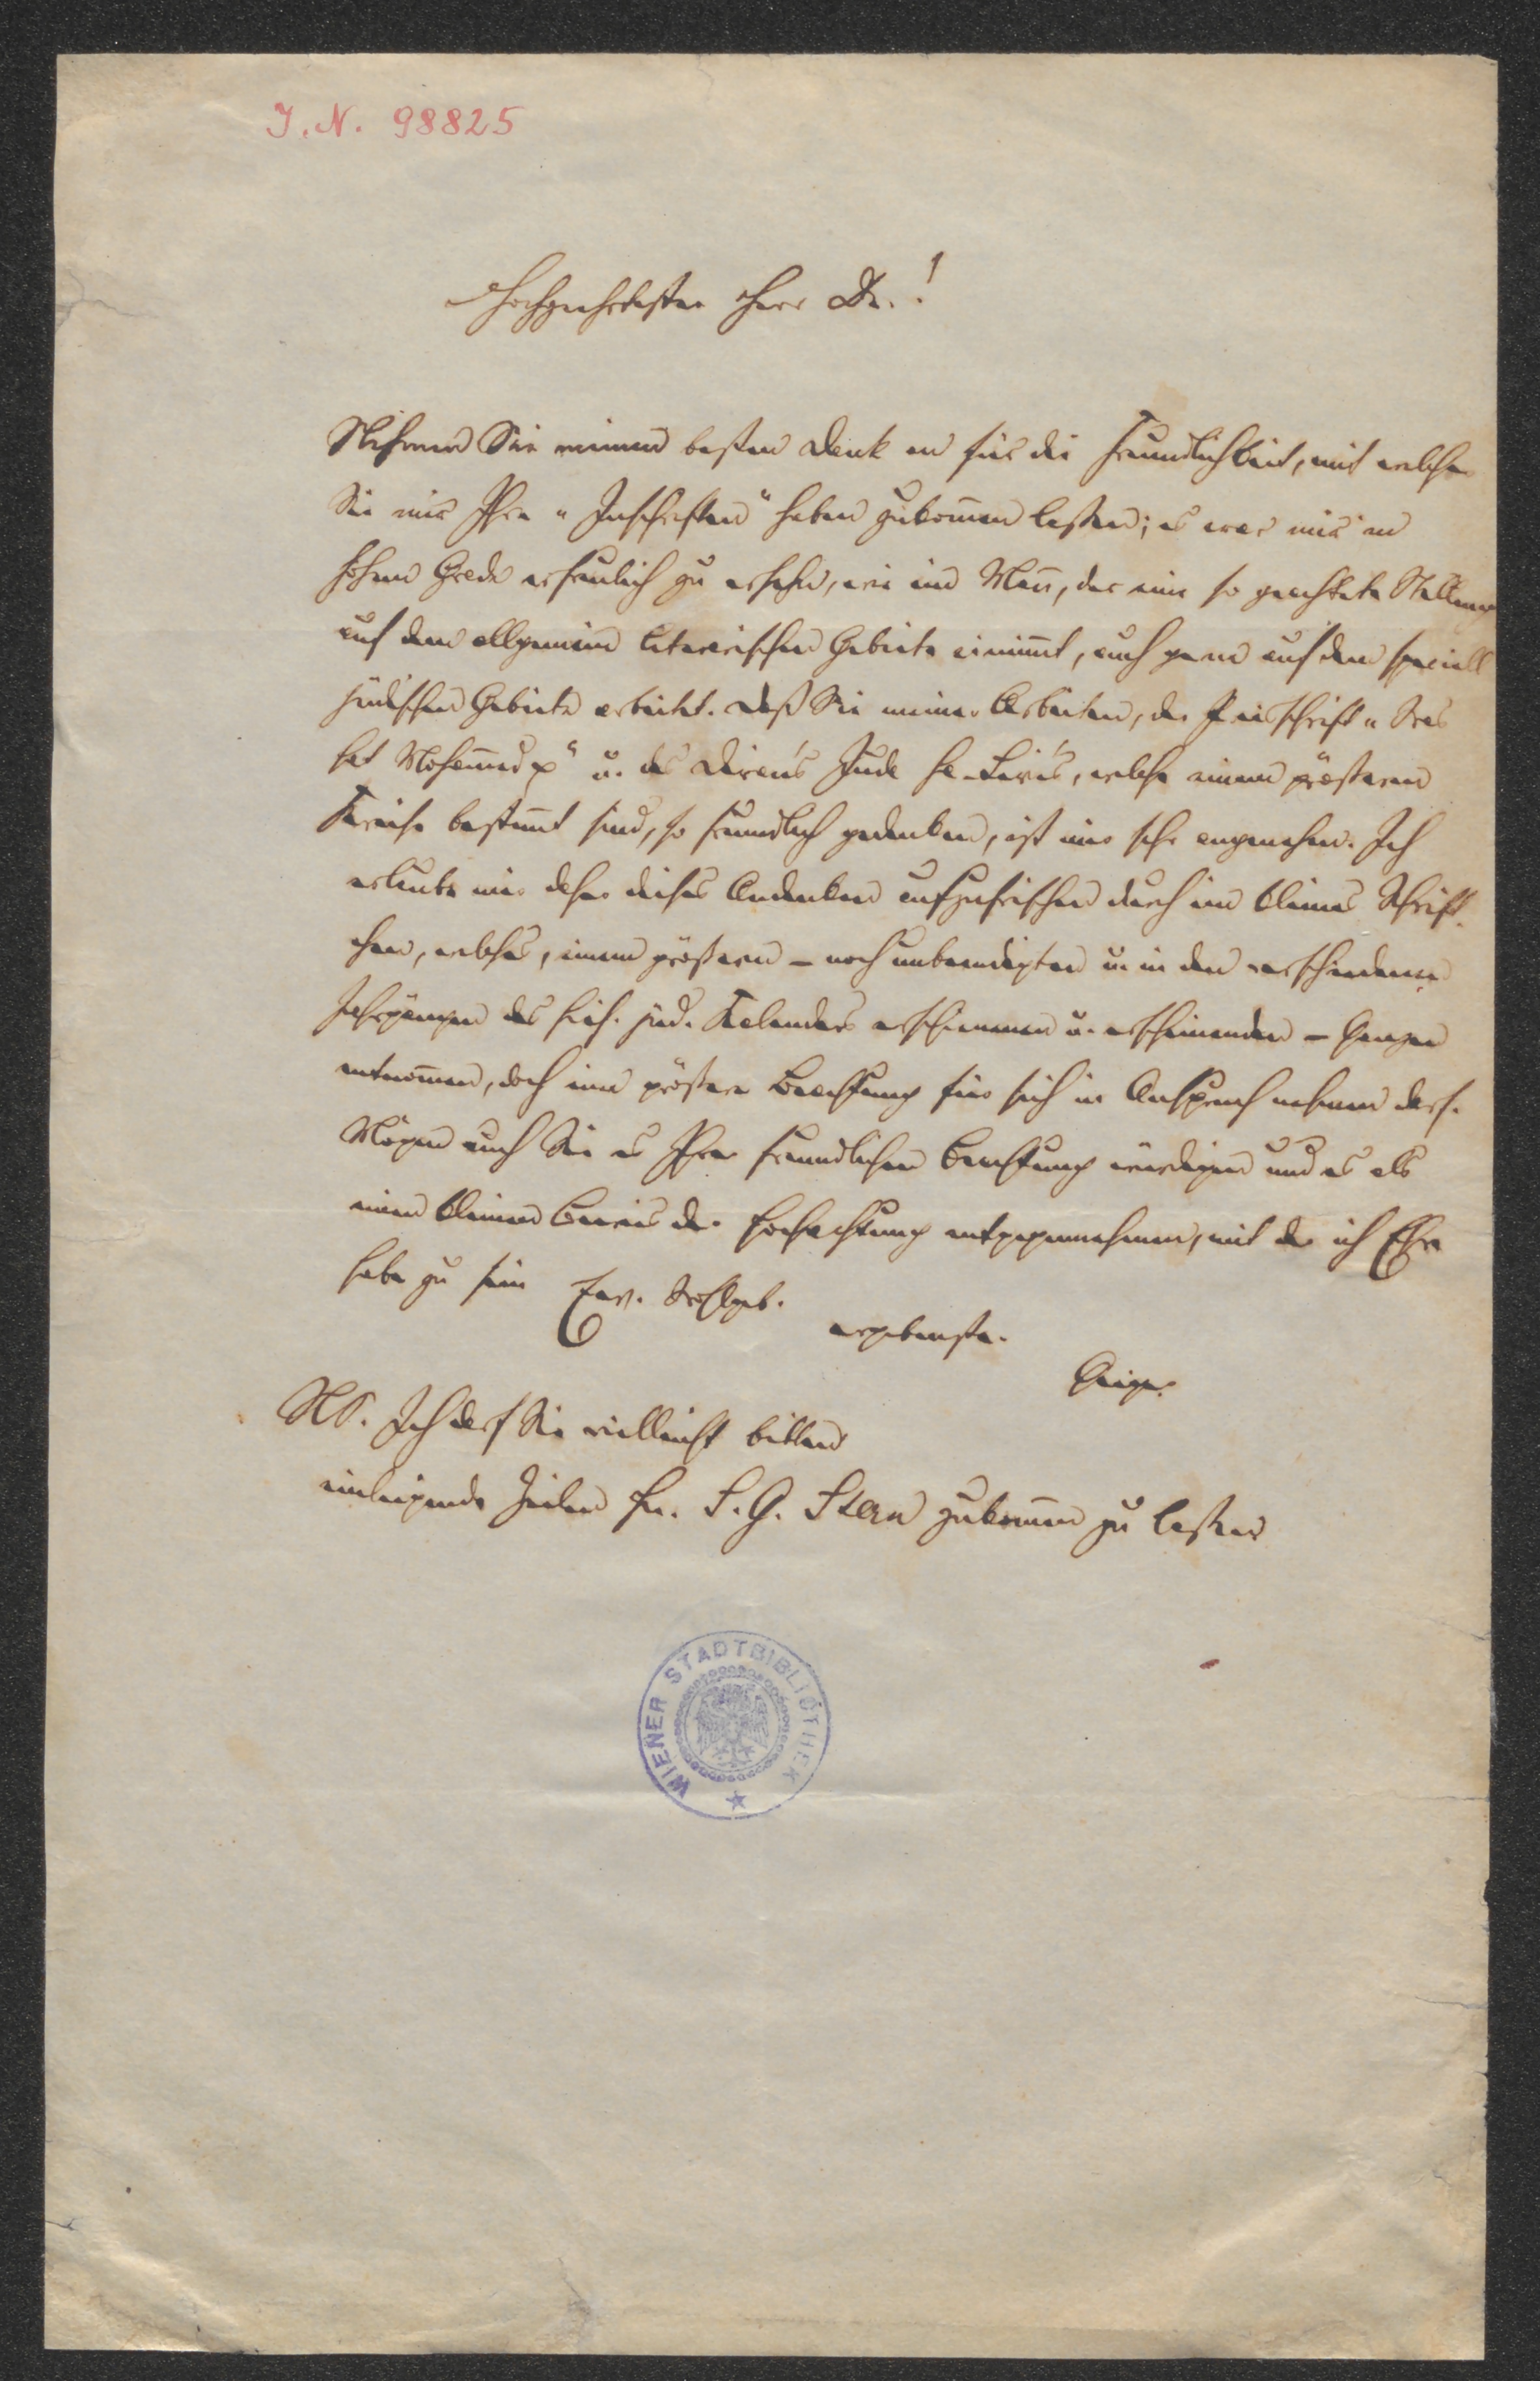 J. N. 98825
Hochgeehrtester Herr Dr.!
Nehmen Sie meinen besten Dank an für die Freundlichkeit, mit welcher
Sie mir Ihre „Inschriften“ haben zukom̄en lassen; es war mir im
hohen Grade erfreulich zu ersehn, wie ein Man̄, der eine so geachtete Stellung
auf dem allgemein literarischen Gebiete einim̄t, auch gern auf dem speciell
jüdischen Gebiete arbeitet. Daß Sie meiner Arbeiten, der Preisschrift „Was
hat Mohammed pp“ u. des Divan's Juda ha-Levi's, welche einem größeren
Kreise bestim̄t sind, so freundlich gedenken, ist mir sehr angenehm. Ich
erlaube mir daher dieses Andenken aufzufrischen durch ein kleines Schrift-
chen, welches, einem größern – noch unbeendigten u. in den verschiedenen
Jahrgängen des hies. jüd. Kalenders erschienenen u. erscheinenden – Ganzen
entnom̄en, doch eine größere Beachtung für sich in Anspruch nehmen darf.
Mögen auch Sie es Ihrer freundlichen Beachtung würdigen und es als
einen kleinen Beweis der Hochachtung entgegennehmen, mit der ich Ehre
habe zu sein Ew. Wohlgeb.
ergebenster.
Geiger.
NS. Ich darf Sie vielleicht bitten
einliegende Zeilen Hn. S. G. Stern zukom̄en zu lassen
WIENER STADTBIBLIOTHEK